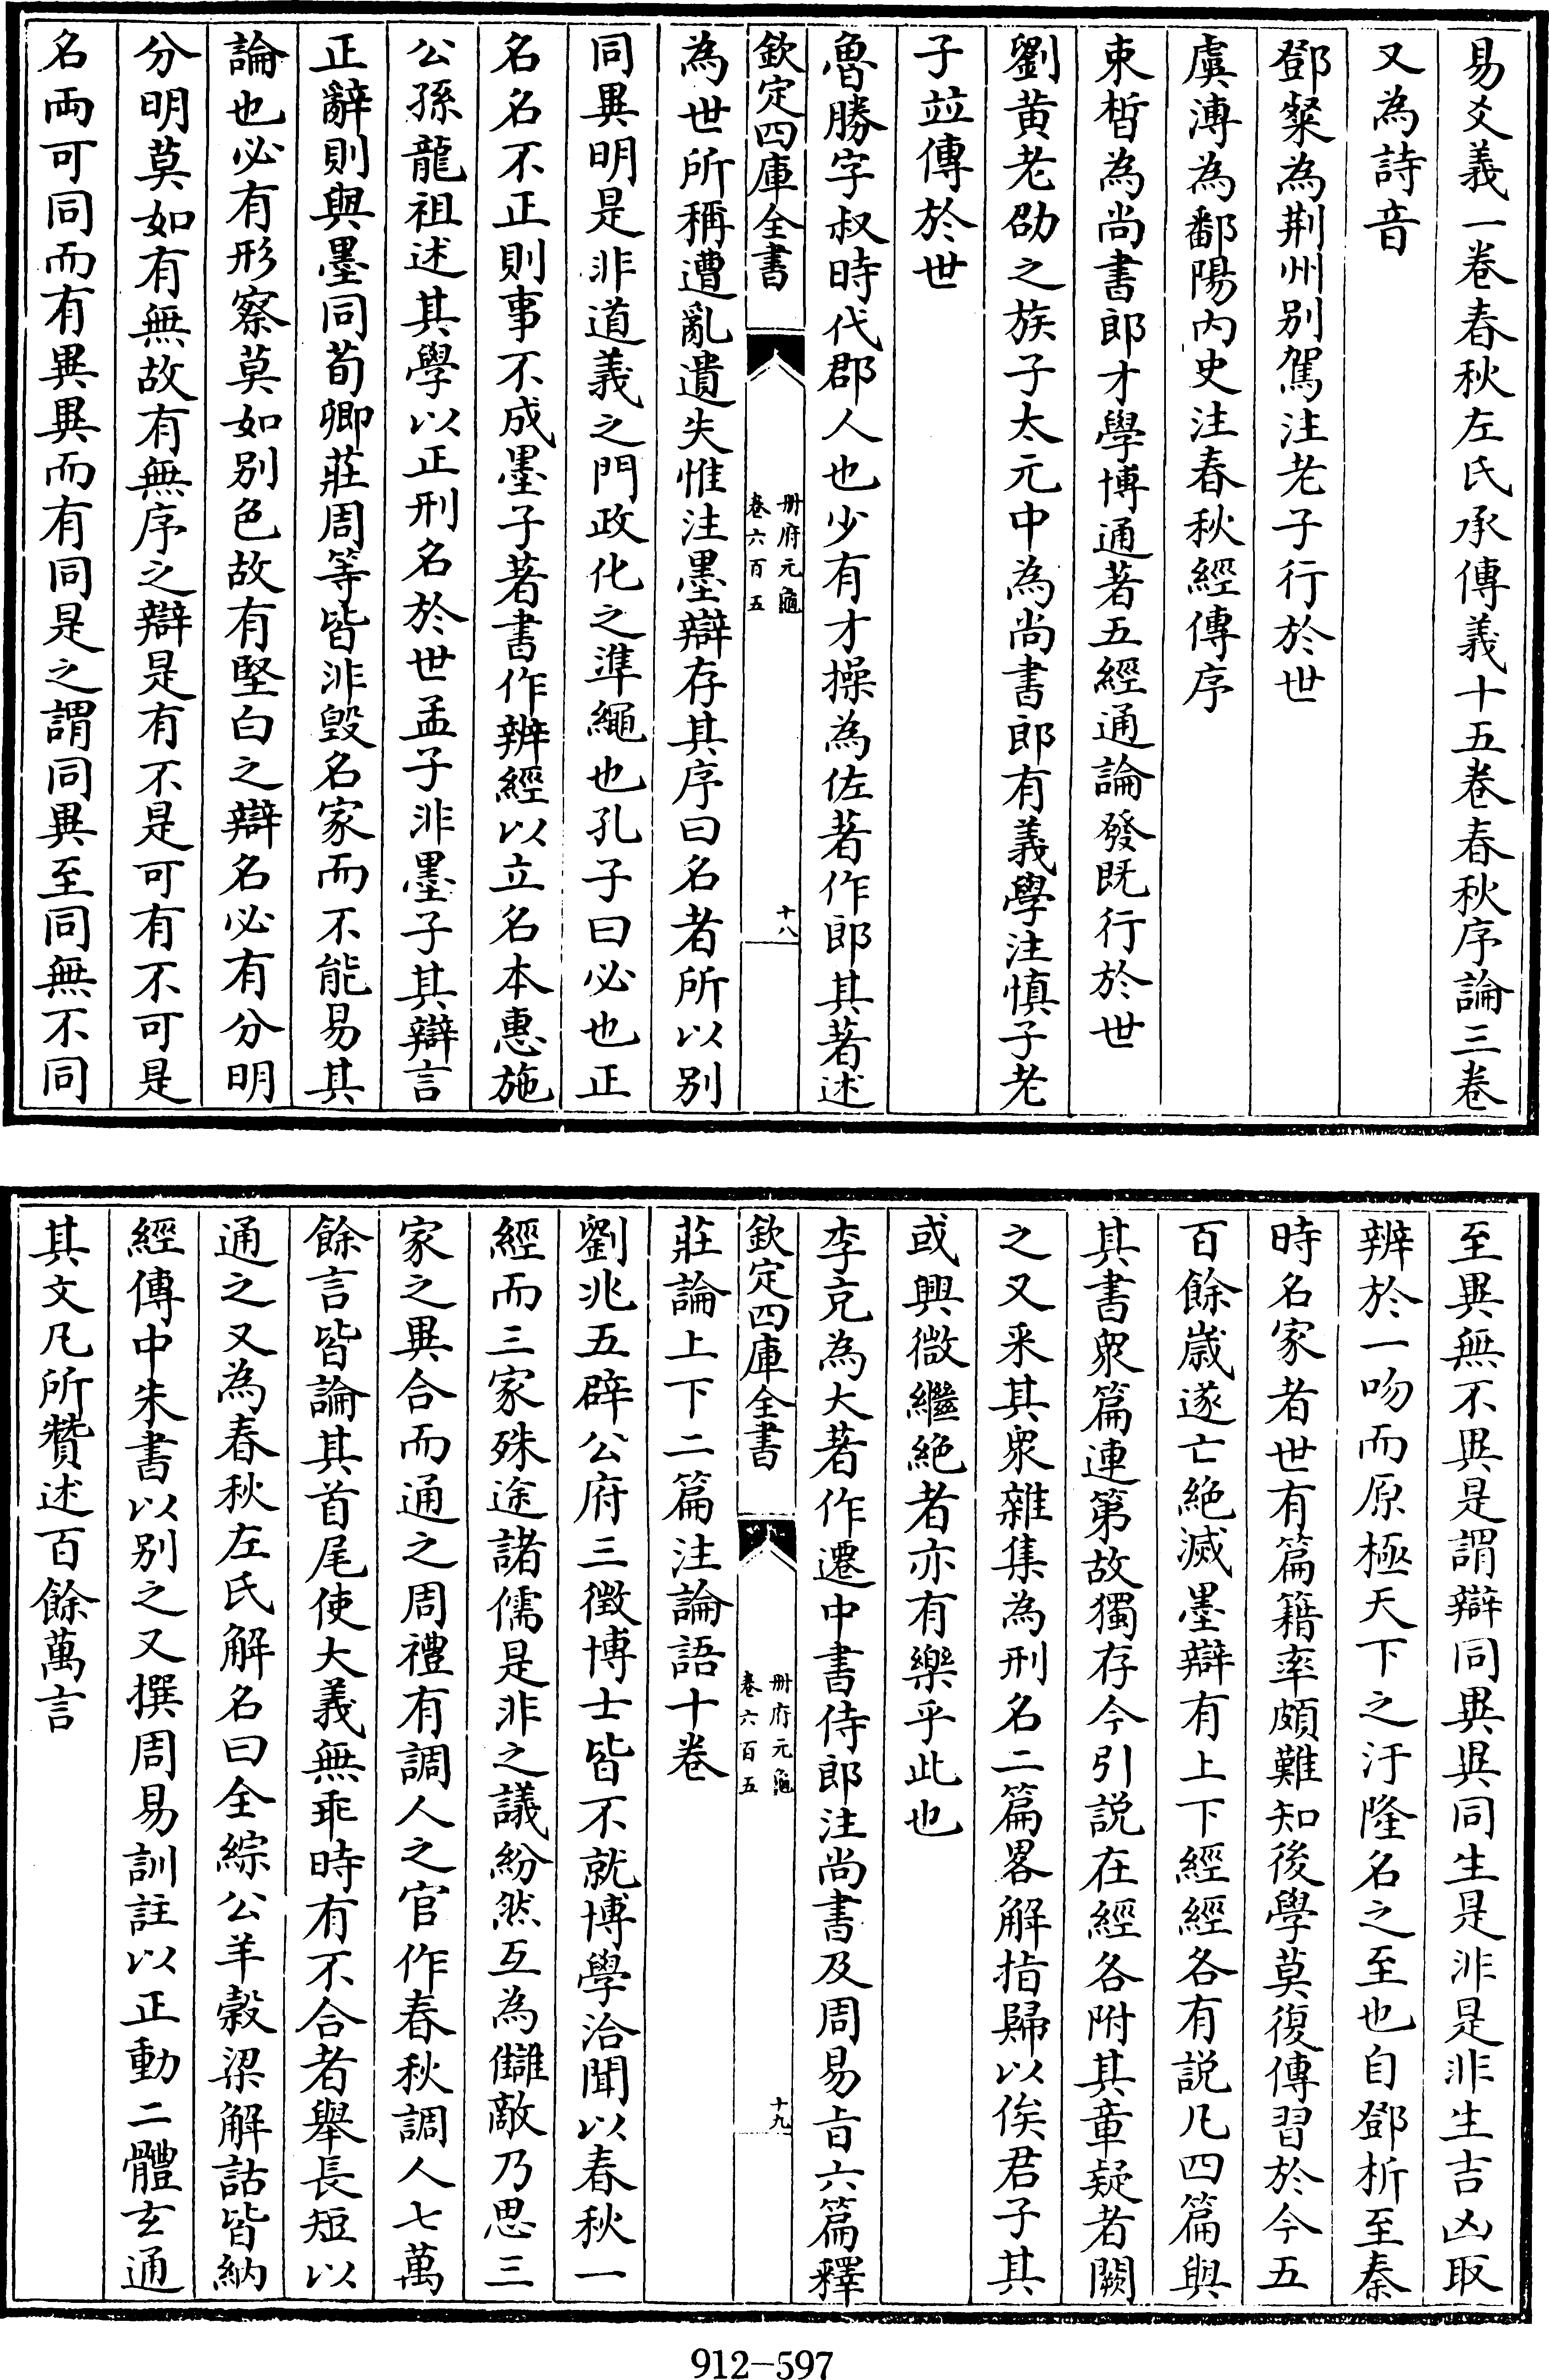 易爻義一卷春秋左氏承傳義十五卷春秋序論三卷
又為詩音
鄧粲為荆州别駕注老子行於世
虞溥為鄱陽内史注春秋經傳序
束晳為尚書郎才學博通著五經通論發既行於世
劉黄老劭之族子太元中為尚書郎有義學注慎子老
子竝傳於世
魯勝字叔時代郡人也少有才操為佐著作郎其著述
欽定四庫全書
册府元龜
卷六百五
十八
為世所稱遭亂遺失惟注墨辯存其序曰名者所以别
同異明是非道義之門政化之準繩也孔子曰必也正
名名不正則事不成墨子著書作辨經以立名本惠施
公孫龍祖述其學以正刑名於世孟子非墨子其辯言
正辭則與墨同荀卿莊周等皆非毁名家而不能易其
論也必有形察莫如别色故有堅白之辯名必有分明
分明莫如有無故有無序之辯是有不是可有不可是
名兩可同而有異異而有同是之謂同異至同無不同
至異無不異是謂辯同異異同生是非是非生吉凶取
辨於一吻而原極天下之汙隆名之至也自鄧析至秦
時名家者世有篇籍率頗難知後學莫復傳習於今五
百餘歲遂亡絶滅墨辯有上下經經各有説凡四篇與
其書衆篇連第故獨存今引説在經各附其章疑者闕
之又采其衆雜集為刑名二篇畧解指歸以俟君子其
或興微繼絶者亦有樂乎此也
李充為大著作遷中書侍郎注尚書及周易旨六篇釋
欽定四庫全書
册府元龜
卷六百五
十九
莊論上下二篇注論語十卷
劉兆五辟公府三徵博士皆不就博學洽聞以春秋一
經而三家殊途諸儒是非之議紛然互為讎敵乃思三
家之異合而通之周禮有調人之官作春秋調人七萬
餘言皆論其首尾使大義無乖時有不合者舉長短以
通之又為春秋左氏解名曰全綜公羊穀梁解詁皆納
經傳中朱書以别之又撰周易訓註以正動二體玄通
其文凡所贊述百餘萬言
912-597